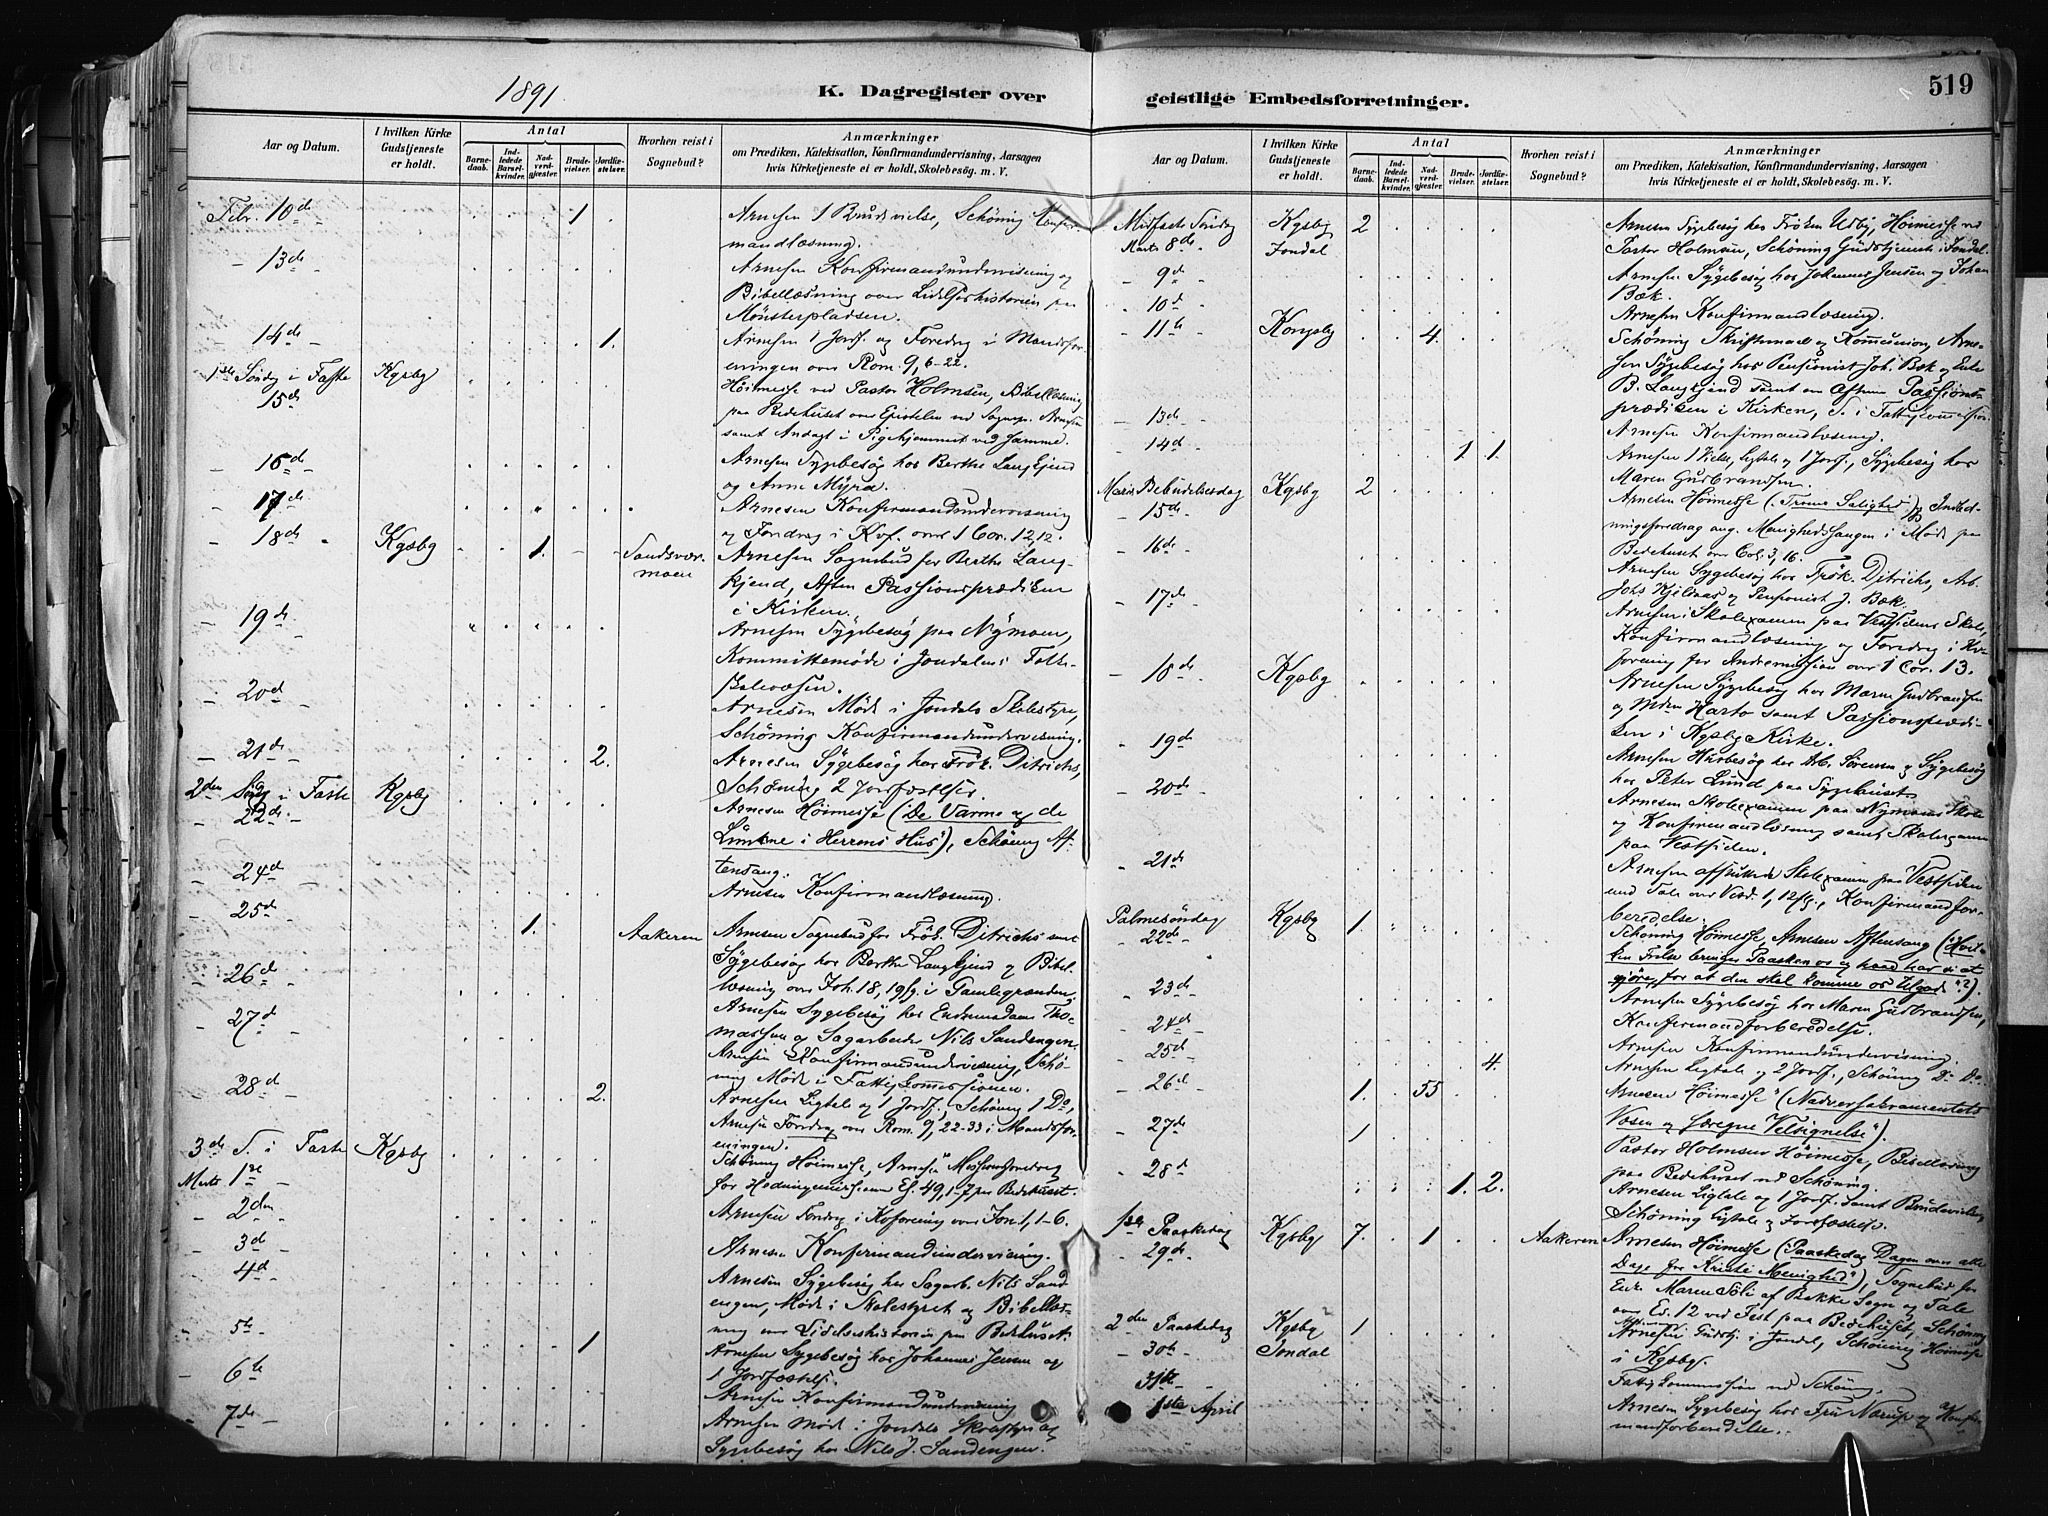 519
1891.
K. Dagregister over geistlige Embedsforretninger.
Aar og Datum.
I hvilken Kirke Gudstjeneste er holdt.
Antal
Barnedaab.
Indledede Barselkvinder.
Nadverdgjester.
Brudevielser.
Jordfæstelser.
Hvorhen reist i Sognebud?
Anmærkninger
om Prædiken, Katekisation, Konfirmandundervisning, Aarsagen
hvis Kirketjeneste ei er holdt, Skolebesøg. m. V.
Febr. 10de 1 Arnesen 1 Brudevielse, Schöning Konfir-
mandlæsning.
13de Arnesen Konfirmandundervisning og
Bibellæsning over Lidelseshistorien paa
Mønsterpladsen.
14de 1. Arnesen 1 Jordf. og Foredrag i Mandsfor-
eningen over Rom. 9, 6-22.
1ste Söndg i Faste Kgsbg
15de Høimesse ved Pastor Holmsen, Bibellæsning
paa Bedehuset over Epistelen ved Sognepr. Arnesen
samt Andagt i Pigehjemmet ved Samme.
16de Arnesen Sygebesøg hos Berthe Langkjend
og Anne Myra.
17de Arnesen Konfirmandundervisning
og Foredrag i Kvf. over 1 Cor. 12, 12.
18de Kgsbg 1. Sandsvær- Arnesen Sognebud for Berthe Lang-
moen kjend, Aften Passionsprædiken
i Kirken.
19de Arnesen Sygebesøg paa Nymoen,
Kommittemøde i Jondalens Folke-
skolevæsen.
20de Arnesen Møde i Jondals Skolestyre,
Schöning Konfirmandundervisning.
21de 2. Arnesen Sygebesøg hos Frök. Ditrichs,
Schöning 2 Jordfæstelser.
2den Søndg i Faste Kgsbg
22de Arnesen Høimesse (De Varme og de
Lunkne i Herrens Hus"), Schöning Af-
tensang.
24de Arnesen Konfirmandlæsning.
25de 1. Aakeren Arnesen Sognebud for Frök. Ditrichs samt
Sygebesøg hos Berthe Langkjend og Bibel-
26de læsning over Joh. 18, 19 fg. i Gamlegrænden.
27de Arnesen Sygebesøg hos Enkemadam Tho-
massen og Sagarbeider Nils Sandengen.
Arnesen Konfirmandundervisning, Schö-
ning Møde i Fattigkommissionen.
28de 2. Arnesen Ligtale og 1 Jordf., Schöning 1 Do,
Arnesen Foredrag over Rom. 9, 22-33 i Mandsfor-
eningen.
3die S. i Faste Kgsbg
Marts 1ste Schöning Høimesse, Arnesen Missionsforedrag
for Hedningemissionen Es. 49, 1-7 paa Bedehuset.
2den Arnesen Foredrag i Kvforening over Jon. 1, 1-6.
3de Arnesen Konfirmandundervisning.
4de Arnesen Sygebesøg hos Sagarb. Nils Sand-
engen, Møde i Skolestyret og Bibellæs-
ning over Lidelseshistorien paa Bedehuset.
5te 1 Arnesen Sygebesøg hos Johannes Jensen og
1 Jordfæstelse.
6te Arnesen Konfirmandundervisning
7de Arnesen Møde i Jondals Skolestyre og
Sygebesøg hos Nils J. Sandengen.
Midfaste Söndag Kgsbg 2 Arnesen Sygebesøg hos Frøken Udby, Høimesse ved
Marts 8de Jondal Pastor Holmsen, Schöning Gudstjeneste i Jondal.
9de Arnesen Sygebesøg hos Johannes Jensen og Johan
Bæk.
10de Arnesen Konfirmandlæsning.
11te Kongsbg 4. Schöning Skriftemaal og Kommunion, Arne-
sen Sygebesøg hos Pensionist Joh. Bæk og Enke
B. Langkjend samt om Aftenen Passions-
prædiken i Kirken, S. i Fattigkommission.
13de Arnesen Konfirmandlæsning.
14de 1. 1. Arnesen 1 Vielse, Ligtale og 1 Jordf., Sygebesøg hos
Maren Gudbrandsen.
Mariæ Bebudelsesdag Kgsbg 2
15de Arnesen Høimesse (Troens Salighed) og Indled-
ningsforedrag ang. Menighedssangen i Møde paa
Bedehuset over Col. 3, 16.
16de Arnesen Sygebesøg hos Frök. Ditrichs, Arb.
Johs Kjelnæs og Pensionist J. Bæk.
17de Arnesen Skoleexamen paa Vestsidens Skole,
Konfirmandlæsning og Foredrag i Kv-
forening for Indremission over 1 Cor. 13.
18de Kgsbg Arnesen Sygebesøg hos Maren Gudbrandsen
og Mdm Harto samt Passionsprædi-
ken i Kgsbg Kirke.
19de Arnesen Husbesøg hos Arb. Sørensen og Sygebesøg
hos Peter Lund paa Sygehuset.
20de Arnesen Skoleexamen paa Nymoens Skole
og Konfirmandlæsning samt Skoleexamen
paa Vestsiden.
21de Arnesen afsluttede Skoleexamen paa Vestsiden
med Tale over Vers. 1, 12 fg., Konfirmandfor-
beredelse.
Palmesöndag Kgsbg 1.
22de Schöning Høimesse, Arnesen Aftensang ("Hvil-
ken Frelse bringer Paasken os og hvad har vi at
gjöre, for at den skal komme os tilgode"?).
23de Arnesen Sygebesøg hos Maren Gudbrandsen,
24de Konfirmandforberedelse.
25de 4. Arnesen Konfirmandundervisning.
Arnesen Ligtale og 2 Jordf., Schöning Do Do.
26de 1. 55 Arnesen Høimesse "(Nadversakramentets
Væsen og store Velsignelse").
27de 1 Pastor Holmsen Høimesse, Bibellæsning
paa Bedehuset ved Schöning.
28de 1. 2. Arnesen Ligtale og 1 Jordf. samt Brudevielse,
Schöning Ligtale og Jordfæstelse.
1ste Paaskedag Kgsbg 7. 1 Aakeren Arnesen Høimesse (Paaskedag Dagen over alle
29de Dage for Kristi Menighed"), Sognebud for
Enke Maren Soli af Bakke Sogn og Tale
over Es. 12 ved Fest paa Bedehuset, Schöning
Aftensang.
2den Paaskedag Kgsbg 1 Arnesen Gudstj. i Jondal, Schöning Høimesse
30te Jondal i Kgsbg.
31te Fattigkommission ved Schöning.
1ste April Arnesen Sygebesøg hos Fru Nærup og Konfir-
mandforberedelse.